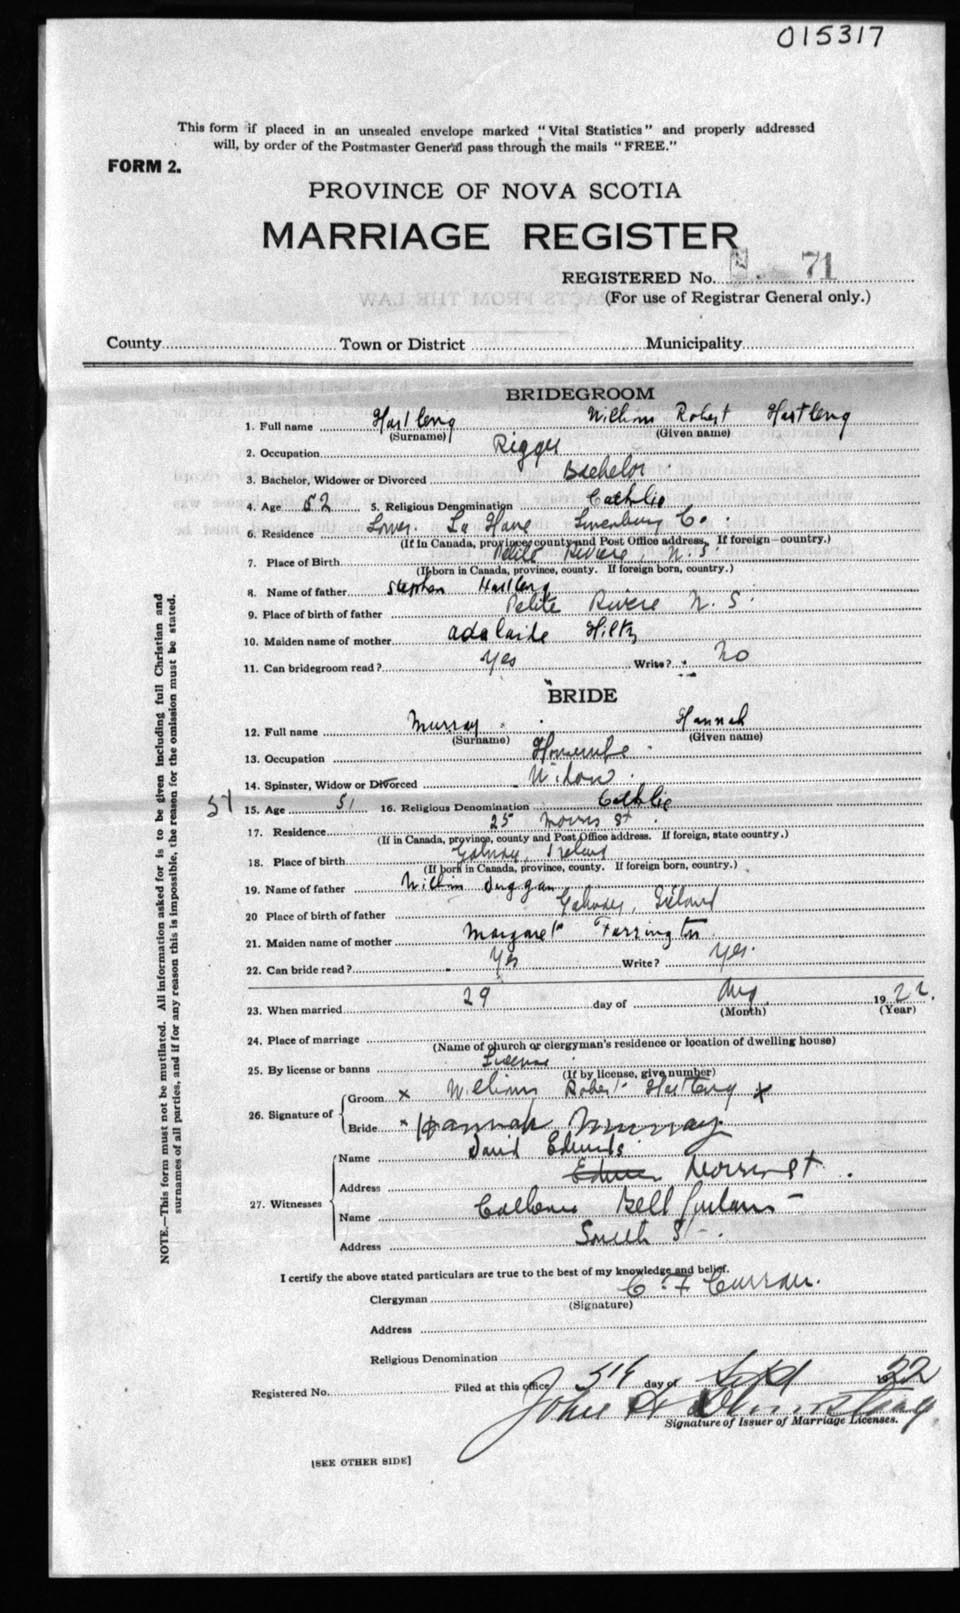 015317
This form if placed in an unsealed envelope marked "Vital Statistics" and properly addressed
will, by order of the Postmaster General pass through the mails "FREE."
FORM 2.
PROVINCE OF NOVA SCOTIA
MARRIAGE REGISTER
REGISTERED No. 71
(For use of Registrar General only.)
County Town or District Municipality
BRIDEGROOM
1. Full name Hartleng William Robert Hartleng
(Surname) (Given name)
2. Occupation Rigger
3. Bachelor, Widower or Divorced Bachelor
4. Age 52 5. Religious Denomination Catholic
6. Residence Lower La Have Lunenburg Co.
(If in Canada, province, county and Post Office address. If foreign—country.)
7. Place of Birth Petite Riviere, N.S.
(If born in Canada, province, county. If foreign born, country.)
8. Name of father Stephen Hartleng
9. Place of birth of father Petite Riviere N.S.
10. Maiden name of mother Adalaide Hiltz
11. Can bridegroom read? Yes Write? No
BRIDE
12. Full name Murray Hannah
(Surname) (Given name)
13. Occupation Housewife
14. Spinster, Widow or Divorced Widow
51 15. Age 51 16. Religious Denomination Catholic
17. Residence 25 Morris St.
(If in Canada, province, county and Post Office address. If foreign, state country.)
18. Place of birth Galway, Ireland
(If born in Canada, province, county. If foreign born, country.)
19. Name of father William Duggan
20 Place of birth of father Galway, Ireland
21. Maiden name of mother Margaret Farrington
22. Can bride read? Yes Write? Yes.
23. When married 29 day of Aug 1922.
(Month) (Year)
24. Place of marriage
(Name of church or clergyman's residence or location of dwelling house)
25. By license or banns License
(If by license, give number)
26. Signature of Groom x William Robert Hartleng x
Bride x Hannah Murray
27. Witnesses Name David Edwards
Address Morris St.
Name Bell
Address South St.
I certify the above stated particulars are true to the best of my knowledge and belief.
Clergyman C F Curran.
(Signature)
Address
Religious Denomination
Registered No. Filed at this office 5th day of Sept 1922
John
Signature of Issuer of Marriage Licenses.
[SEE OTHER SIDE]
NOTE.—This form must not be mutilated. All information asked for is to be given including full Christian and
surnames of all parties, and if for any reason this is impossible, the reason for the omission must be stated.